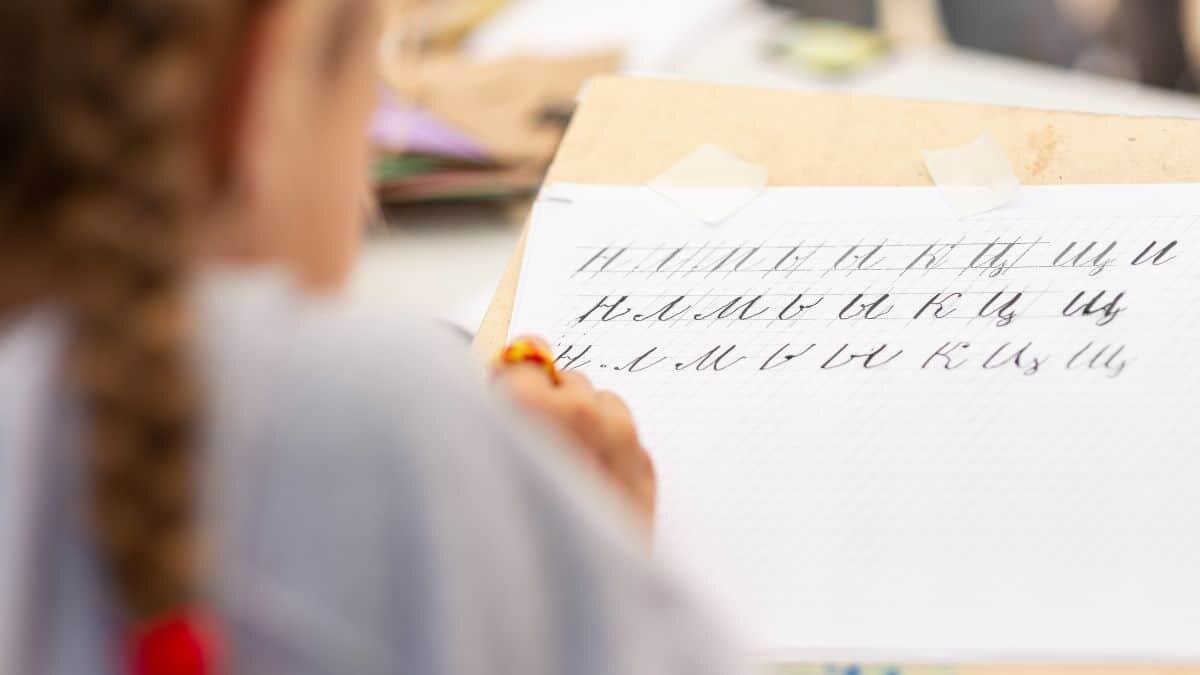 н л м ь ы к ц щ и
н л м ь ы к ц щ
н л м ь ы к ц щ